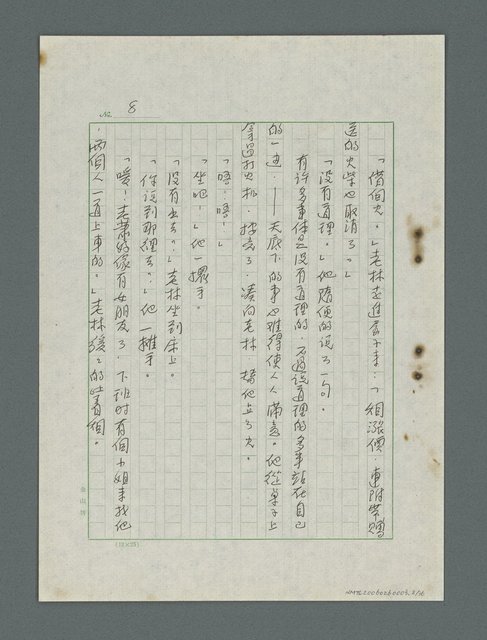 No. 8
「借個火。」老林走進屋子來.「烟漲價.連附帶贈
送的火柴也取消了。」
「沒有道理。」他隨便的說了一句。
有許多事体是没有道理的.不過說道理的多事站在自己
的一邊.——天底下的事也难得使人人滿意。他從桌子上
拿過打火机.揿亮了.湊向老林 替他上了火。
「唔.唔!」
「坐吧!」他一擺手。
「没有出去?」老林坐到床上。
「你说到那裡去?」他一攤手。
「噯!老蕭好像有女朋友了.下班时有個小姐来找他
.两個人一道上車的。」老林緩緩的吐着烟。
金山牌
(12×25)
NMTL20060260003_8/16